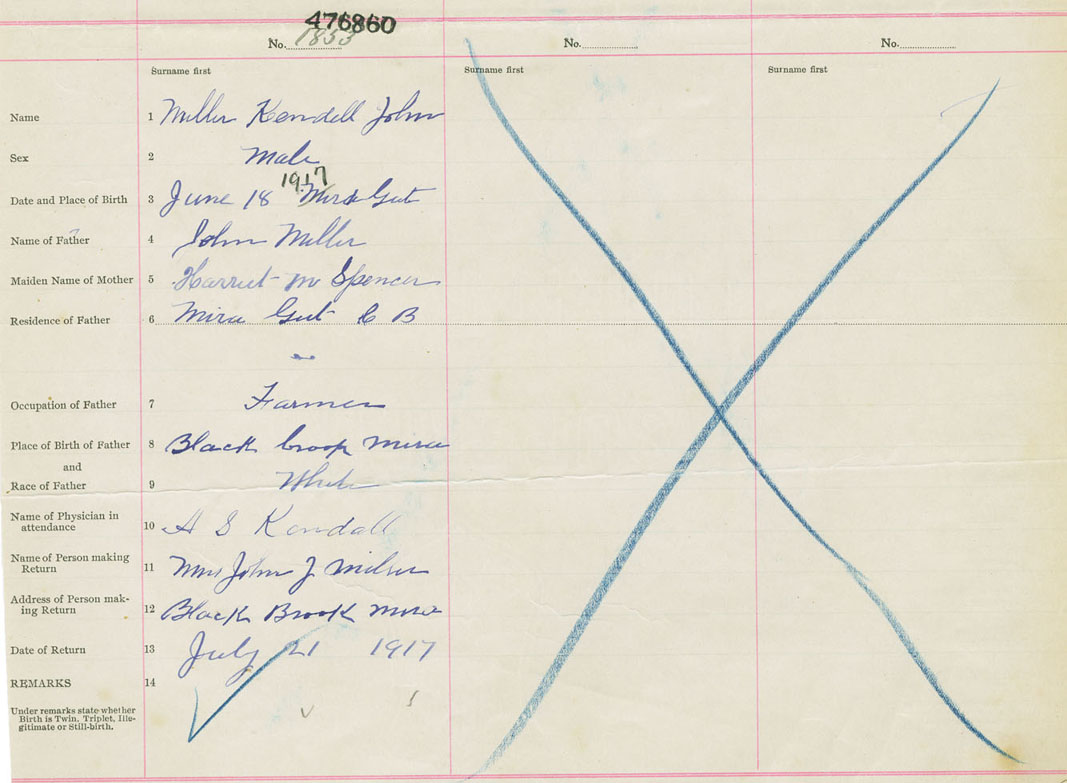 476860
No. 1853 No. No.
Surname first Surname first Surname first
Name 1 Miller Kendell John
Sex 2 Male
1917
Date and Place of Birth 3 June 18 Mira Gut
Name of Father 4 John Miller
Maiden Name of Mother 5 Harriet M Spencer
Residence of Father 6 Mira Gut C B
Occupation of Father 7 Farmer
Place of Birth of Father 8 Black Brook Mira
and
Race of Father 9 White
Name of Physician in
attendance 10 H S Kendall
Name of Person making
Return 11 Mrs John J
Address of Person mak-
ing Return 12 Black Brook Mira
Date of Return 13 July 21 1917
REMARKS 14
Under remarks state whether
Birth is Twin, Triplet, Ille-
gitimate or Still-birth.